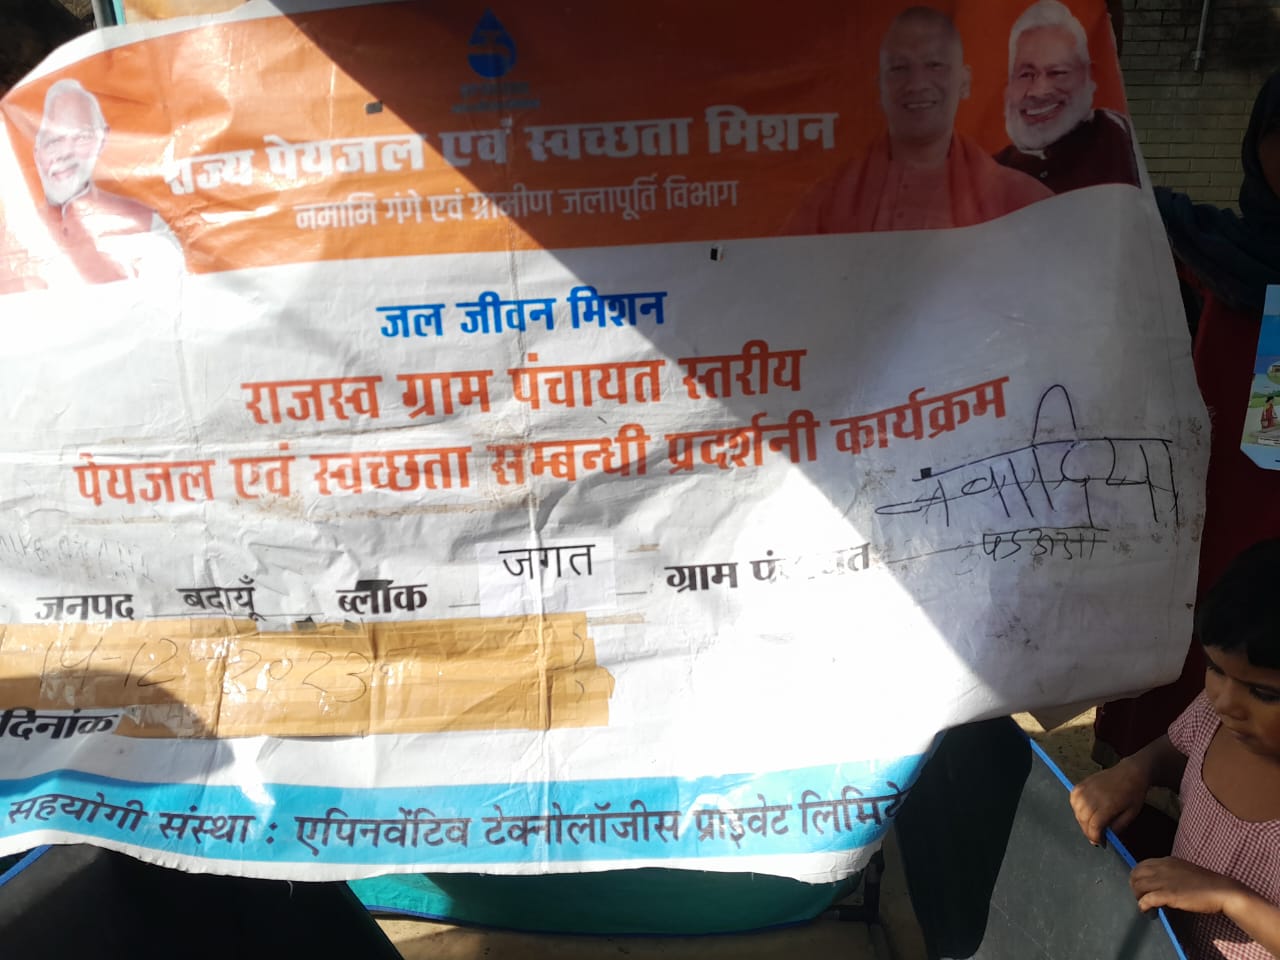 राज्य पेयजल एवं स्वच्छता मिशन
नमामि गंगे एवं ग्रामीण जलापूर्ति विभाग
जल जीवन मिशन
राजस्व ग्राम पंचायत स्तरीय
पेयजल एवं स्वच्छता सम्बन्धी प्रदर्शनी कार्यक्रम
जनपद बदायूँ ब्लॉक जगत ग्राम
14-12-2023
दिनांक
सहयोगी संस्था : एपिनवेंटिव टेक्नोलॉजीस प्राइवेट